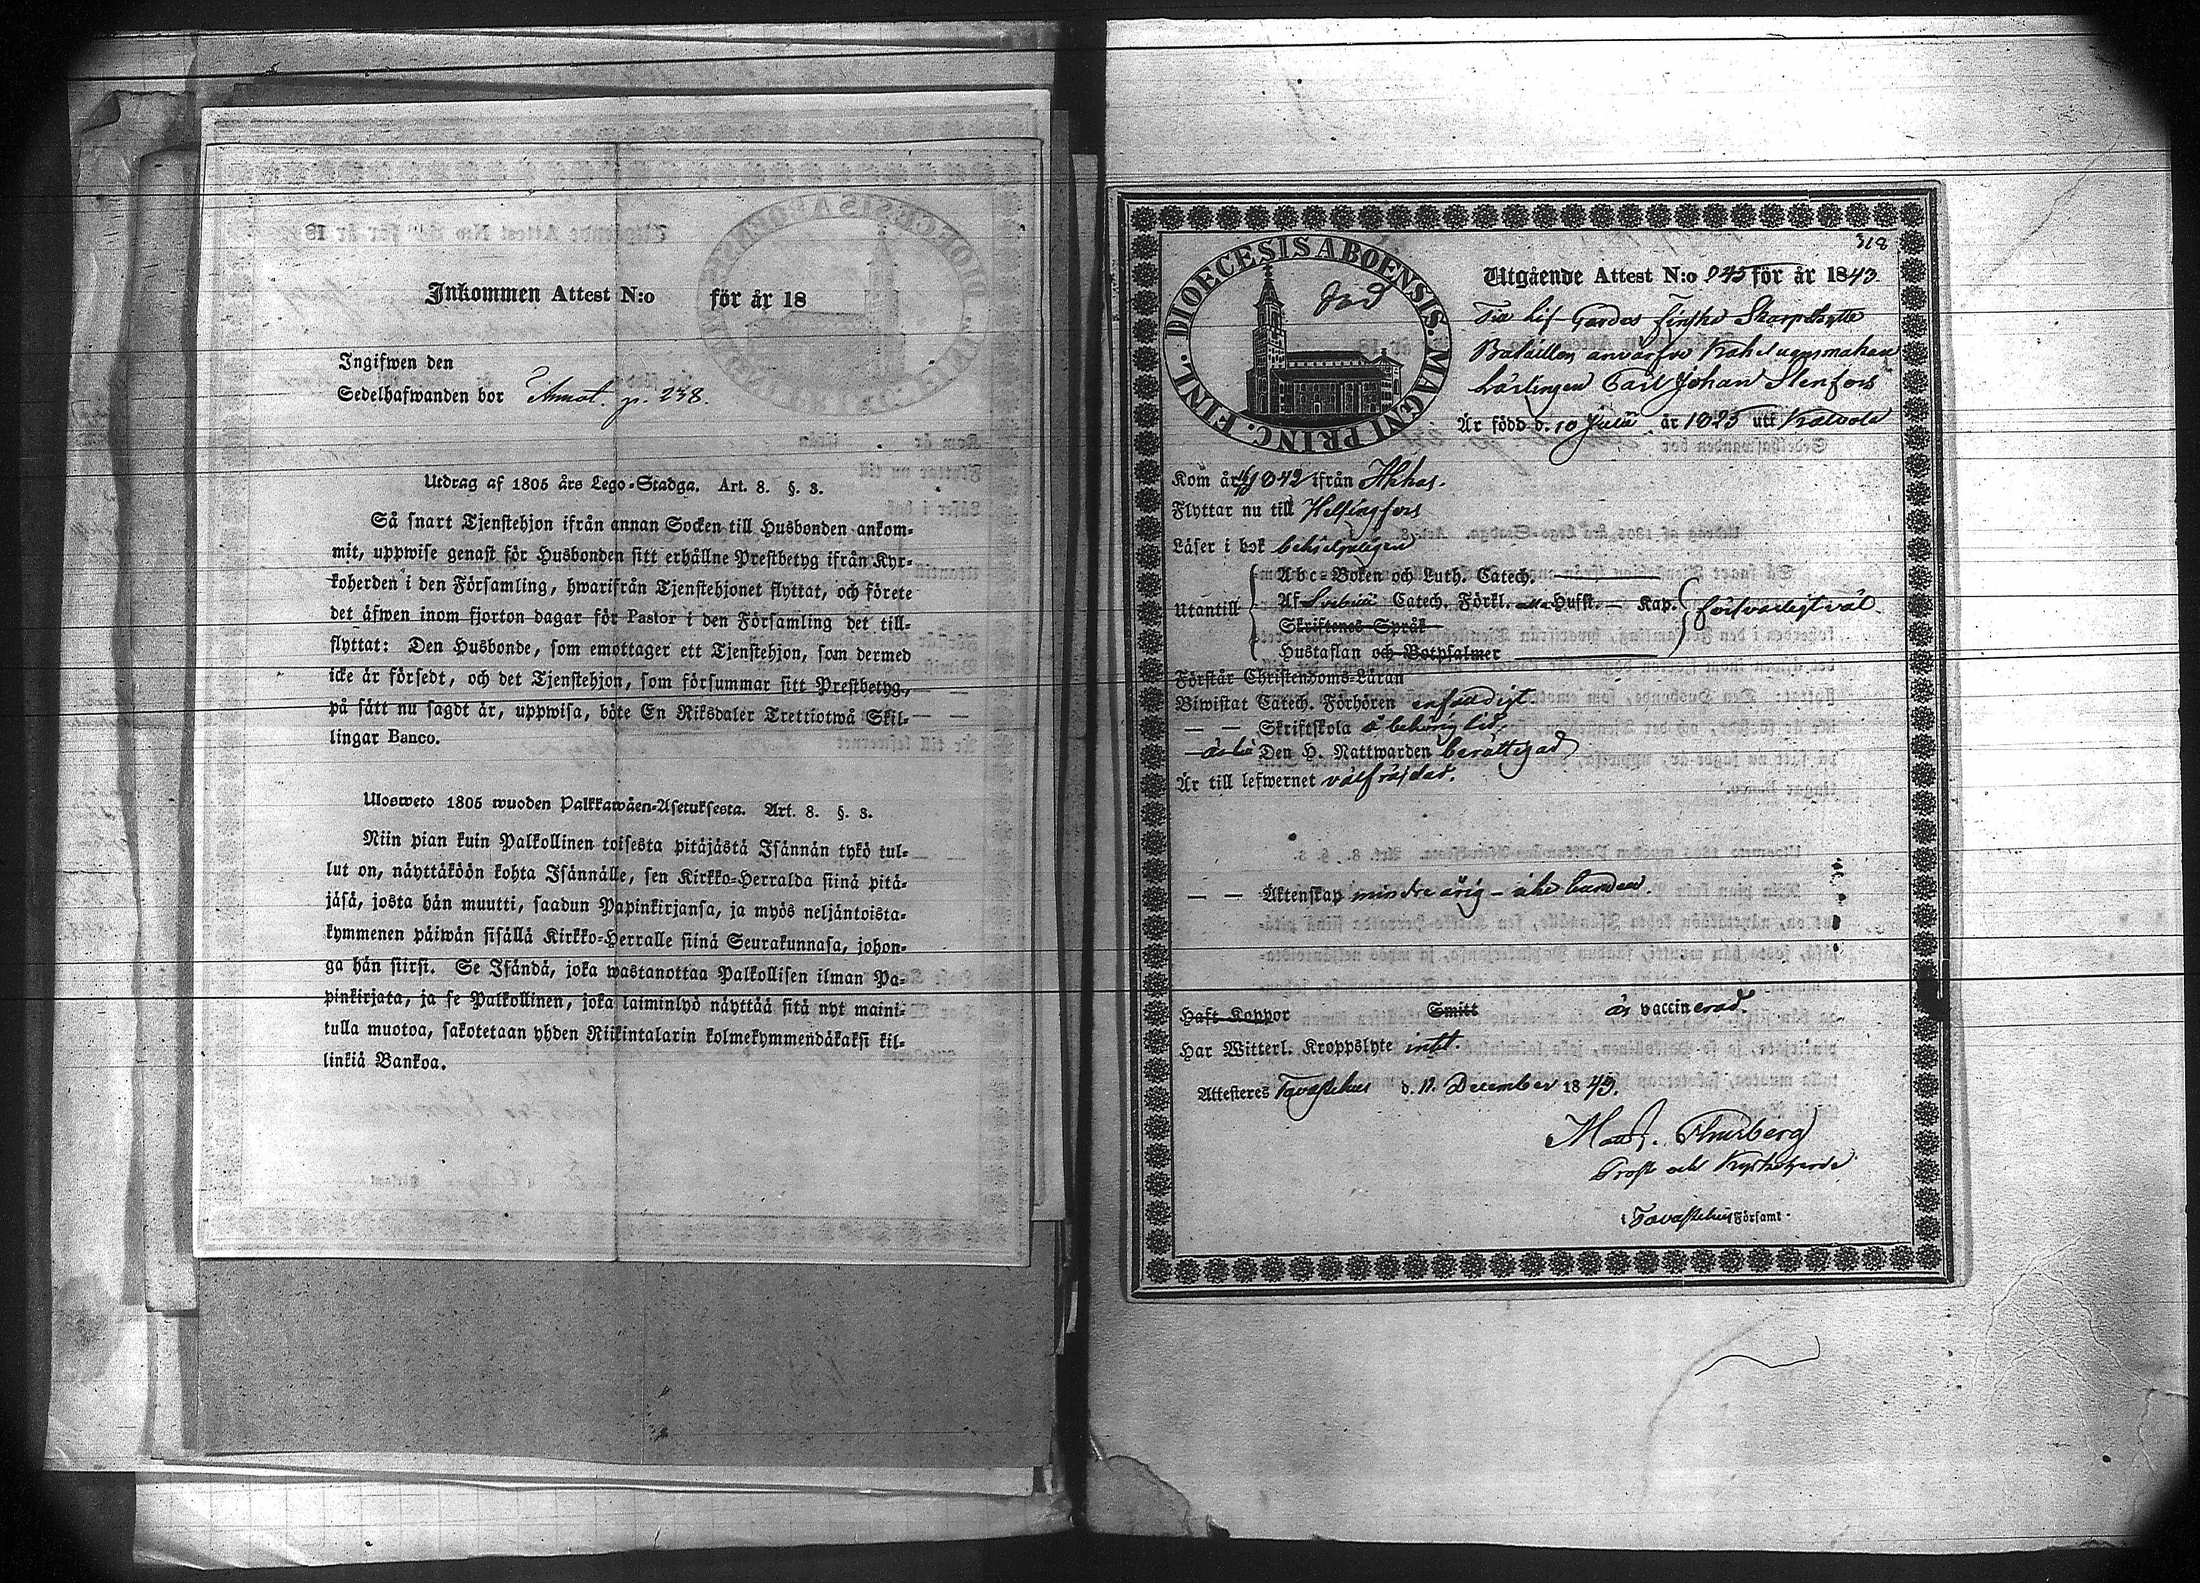 Inkommen Attest N:o för år 18
Ingifwen den
Sedelhafwanden bor Annot. p. 238.
Utdrag af 1805 års Lego-Stadga. Art. 8. §. 3.
Så snart Tjenstehjon ifrån annan Socken till Husbonden ankom-
mit, uppwise genast för Husbonden sitt erhållne Prestbetyg ifrån Kyr-
koherden i den Församling, hwarifrån Tjenstehjonet flyttat, och förete
det äfwen inom fjorton dagar för Pastor i den Församling det till-
flyttat: Den Husbonde, som emottager ett Tjenstehjon, som dermed
icke är försedt, och det Tjenstehjon, som försummar sitt Prestbetyg,
på sätt nu sagdt är, uppwisa, böte En Riksdaler Trettiotwå Skil-
lingar Banco.
Ulosweto 1805 wuoden Palkkawäen-Asetuksesta. Art. 8. §. 3.
Niin pian kuin Palkollinen toisesta pitäjästä Isännän tykö tul-
lut on, näyttäköön kohta Isännälle, sen Kirkko-Herralda siinä pitä-
jäsä, josta hän muutti, saadun Papinkirjansa, ja myös neljäntoista-
kymmenen päiwän sisällä Kirkko-Herralle siinä Seurakunnasa, johon-
ga hän siirsi. Se Isändä, joka wastanottaa Palkollisen ilman Pa-
pinkirjata, ja se Palkollinen, joka laiminlyö näyttää sitä nyt maini-
tulla muotoa, sakotetaan yhden Riikintalarin kolmekymmendäkaksi kil-
linkiä Bankoa.
318
DIOECESIS ABOENSIS. MAGNI PRINC. FINL.
Utgående Attest N:o 245 för år 1843.
Till Lif-Gardes Finska Skarpskytte
Bataillon anvärfve Kakelugnsmakare
Lärlingen Carl Johan Stenfors
Är född d. 10 Julii år 1825 uti Kalvola
Kom år 1842 ifrån Akkas.
Flyttar nu till Helsingfors
Läser i bok behjelpligen
Abc-Boken och Luth. Catech.
Utantill Af Svebilii Catech. Förkl. alla Hufst. — Kap. försvarligt väl.
Skriftenes Språk
Hustaflan och Botpsalmer
Förstår Christendoms-Läran
Biwistat Catech. Förhören
— — Skriftskola å behörig tid,
Den H. Nattwarden berättigad
Är till lefwernet välfräjdad.
— — Äktenskap minderårig –
Haft Koppor Smitt är vaccinerad.
Har Witterl. Kroppslyte intet.
Attesteres Tavastehus d. 11. December 1843.
Thurberg
Prost och Kyrkoherde
i Tavastehus Församl.